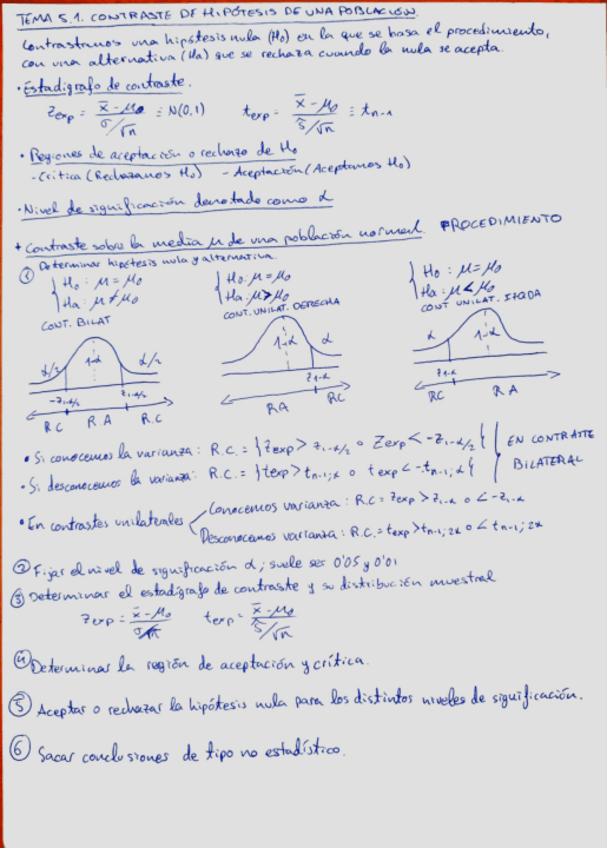 TEMA 5.1. CONTRASTE DE HIPÓTESIS DE UNA POBLACIÓN.
Contrastamos una hipótesis nula (H₀) en la que se basa el procedimiento,
con una alternativa (Ha) que se rechaza cuando la nula se acepta.
· Estadígrafo de contraste.
Zexp = (x̄ - μ₀) / (σ/√n) ≡ N(0,1)    texp = (x̄ - μ₀) / (ŝ/√n) ≡ tn-1
· Regiones de aceptación o rechazo de H₀
- Crítica (Rechazamos H₀)  - Aceptación (Aceptamos H₀)
· Nivel de significación denotado como α
* Contraste sobre la media μ de una población normal. PROCEDIMIENTO
① Determinar hipótesis nula y alternativa.
{ H₀: μ = μ₀    { H₀: μ = μ₀    { H₀: μ = μ₀
Ha: μ ≠ μ₀    Ha: μ > μ₀    Ha: μ < μ₀
CONT. BILAT    CONT. UNILAT. DERECHA    CONT UNILAT. IZQDA
α/2  1-α  α/2    1-α  α    α  1-α
-z1-α/2  z1-α/2    z1-α    z1-α
RC  R.A  R.C    RA  RC    RC  RA
• Si conocemos la varianza: R.C. = {Zexp > z1-α/2 o Zexp < -z1-α/2} EN CONTRASTE
• Si desconocemos la varianza: R.C. = {texp > tn-1;α o texp < -tn-1;α} BILATERAL
• En contrastes unilaterales
Conocemos varianza: R.C = Zexp > z1-α o < -z1-α
Desconocemos varianza: R.C. = texp > tn-1;2α o < tn-1;2α
② Fijar el nivel de significación α; suele ser 0'05 y 0'01
③ Determinar el estadígrafo de contraste y su distribución muestral
Zexp = (x̄ - μ₀) / (σ/√n)    texp = (x̄ - μ₀) / (ŝ/√n)
④ Determinar la región de aceptación y crítica.
⑤ Aceptar o rechazar la hipótesis nula para los distintos niveles de significación.
⑥ Sacar conclusiones de tipo no estadístico.